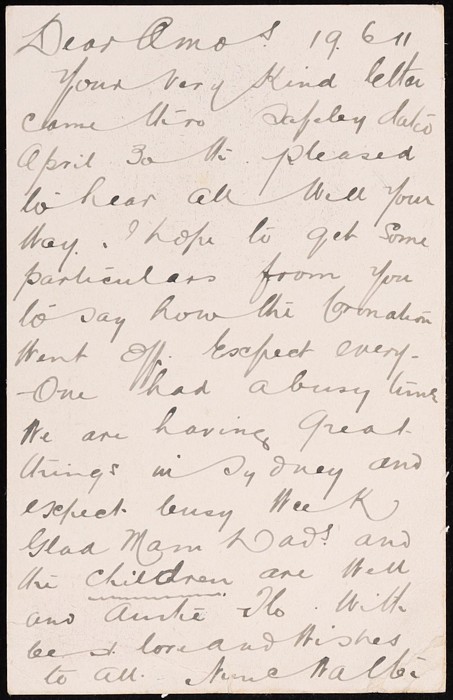 Dear Amos 19.6 11
Your very kind letter
came thro safeley date
April 30 th. pleased
to hear all well your
way. I hope to get some
particulars from you
to say how the Coronation
went off. Expect every-
-One had a busy time
We are having Great
things in Sydney and
expect busy week
Glad Mam Dads and
the children are well
and Auntie Flo. With
best love and wishes
to all. Nunc Walter